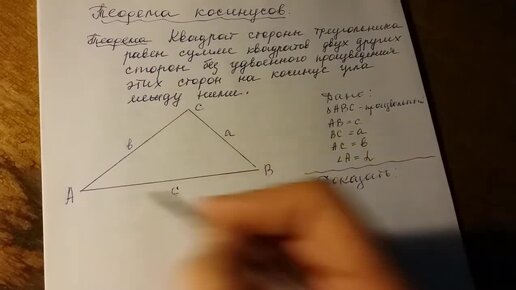 Теорема косинусов.
Теорема Квадрат стороны треугольника
равен сумме квадратов двух других
сторон без удвоенного произведения
этих сторон на косинус угла
между ними.
Дано:
ΔABC - произвольный
AB = c
BC = a
AC = b
∠A = α
Доказать:
C
в
a
A
B
c